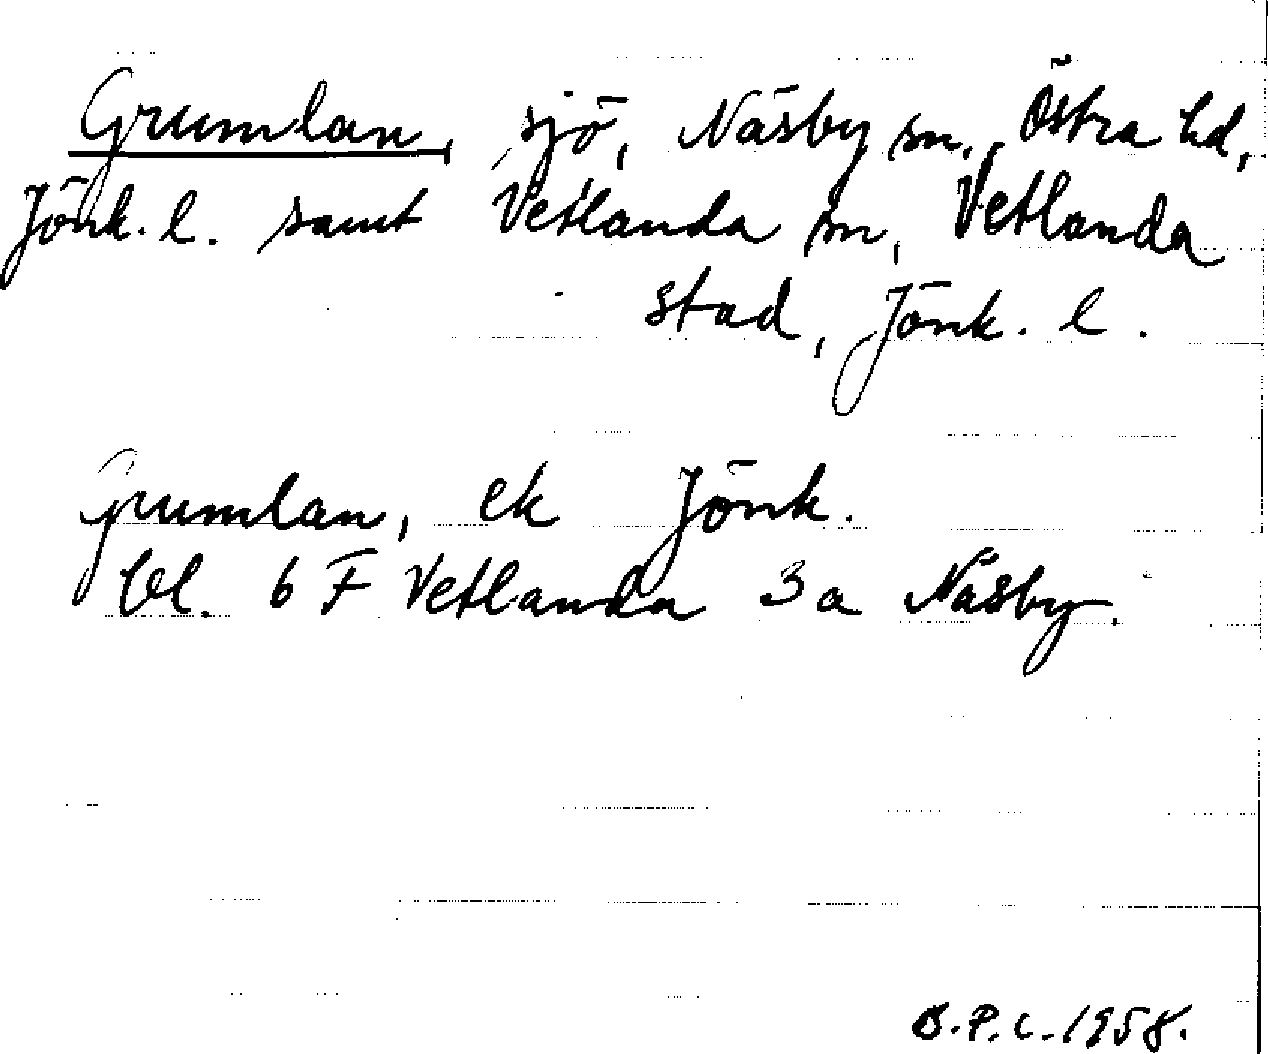 Grumlan, sjö, Näsby sn, Östra hd,
Jönk. l. samt Vetlanda sn, Vetlanda
stad, Jönk. l.
Grumlan, ek Jönk.
bl. 6 F Vetlanda 3a Näsby.
B.P.C. 1958.